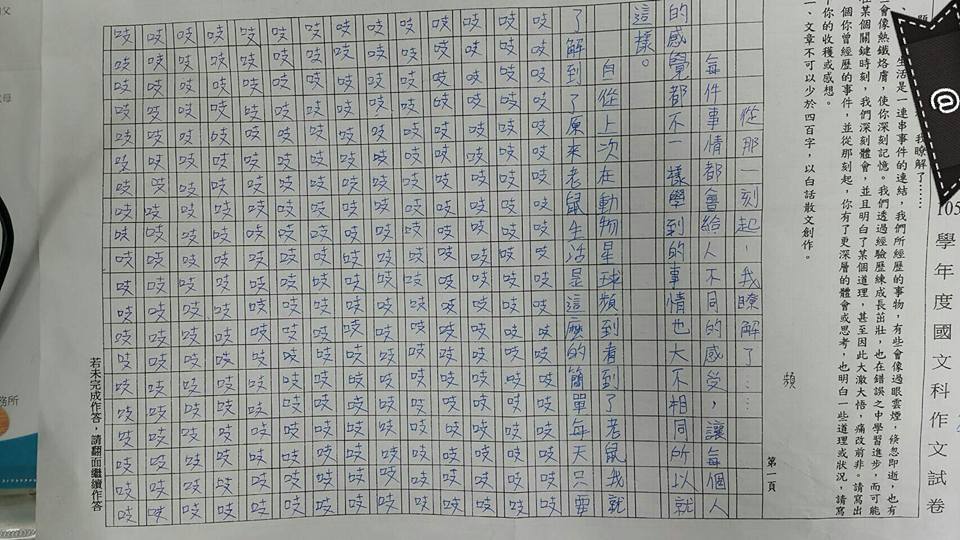 105學年度國文科作文試卷
題
我瞭解了……
生活是一連串事件的連結，我們所經歷的事物，有些會像過眼雲煙，倏忽即逝，也有
會像熱鐵烙膚，使你深刻記憶。我們透過經驗歷練成長茁壯，也在錯誤之中學習進步，而可能
在某個關鍵時刻，我們深刻體會，並且明白了某個道理，甚至因此大澈大悟，痛改前非。請寫出
個你曾經歷的事件，並從那刻起，你有了更深層的體會或思考，也明白一些道理或狀況，請寫
你的收穫或感想。
、文章不可以少於四百字，以白話散文創作。
頻
第一頁
從那一刻起，我瞭解了……
每件事情都會給人不同的感受，讓每個人
的感覺都不一樣學到的事情也大不相同所以就
這樣。
自從上次在動物星球頻到看到了老鼠我就
了解到了原來老鼠生活是這麼的簡單每天只需
吱吱吱吱吱吱吱吱吱吱吱吱吱吱吱吱吱吱吱吱
吱吱吱吱吱吱吱吱吱吱吱吱吱吱吱吱吱吱吱吱
吱吱吱吱吱吱吱吱吱吱吱吱吱吱吱吱吱吱吱吱
吱吱吱吱吱吱吱吱吱吱吱吱吱吱吱吱吱吱吱吱
吱吱吱吱吱吱吱吱吱吱吱吱吱吱吱吱吱吱吱吱
吱吱吱吱吱吱吱吱吱吱吱吱吱吱吱吱吱吱吱吱
吱吱吱吱吱吱吱吱吱吱吱吱吱吱吱吱吱吱吱吱
吱吱吱吱吱吱吱吱吱吱吱吱吱吱吱吱吱吱吱吱
吱吱吱吱吱吱吱吱吱吱吱吱吱吱吱吱吱吱吱吱
吱吱吱吱吱吱吱吱吱吱吱吱吱吱吱吱吱吱吱吱
吱吱吱吱吱吱吱吱吱吱吱吱吱吱吱吱吱吱吱吱
吱吱吱吱吱吱吱吱吱吱吱吱吱吱吱吱吱吱吱吱
吱吱吱吱吱吱吱吱吱吱吱吱吱吱吱吱吱吱吱吱
吱吱吱吱吱吱吱吱吱吱吱吱吱吱吱吱吱吱吱吱
若未完成作答，請翻面繼續作答
務所
@